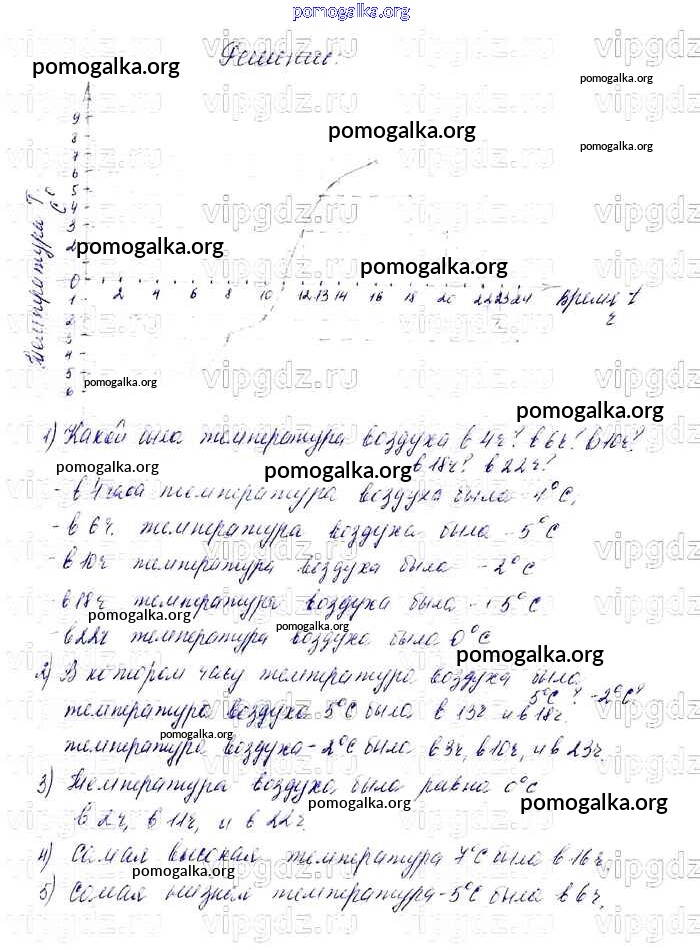 pomogalka.org
Решение:
pomogalka.org
pomogalka.org
pomogalka.org
pomogalka.org
9
8
7
6
5
4
3
2
0
1
2
3
4
5
6
Температура T,
°C
pomogalka.org
pomogalka.org
2 4 6 8 10 12 13 14 16 18 20 22 23 24 Время t
ч
pomogalka.org
pomogalka.org
1) Какой была температура воздуха в 4ч? в 6ч? в 10ч?
в 18ч? в 22ч?
pomogalka.org
pomogalka.org
- в 4 часа температура воздуха была -4°C,
- в 6ч. температура воздуха была -5°C
- в 10ч температура воздуха была -2°C
- в 18ч температура воздуха была +5°C
pomogalka.org
pomogalka.org
- в 22ч температура воздуха была 0°C
pomogalka.org
2) В котором часу температура воздуха была
5°C? -2°C?
температура воздуха 5°C была в 13ч и в 18ч.
pomogalka.org
температура воздуха -2°C была в 3ч, в 10ч, и в 23ч.
3) Температура воздуха была равна 0°C
pomogalka.org
pomogalka.org
в 2ч, в 11ч, и в 22ч.
4) Самая высокая температура 7°C была в 16ч,
pomogalka.org
5) Самая низкая температура -5°C была в 6ч,
vipgdz.ru